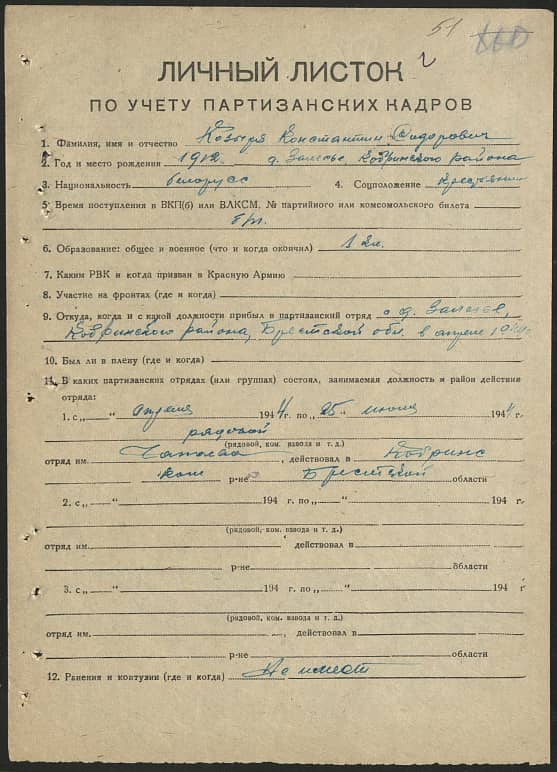 51
ЛИЧНЫЙ ЛИСТОК
ПО УЧЕТУ ПАРТИЗАНСКИХ КАДРОВ
1. Фамилия, имя и отчество Козыря Константин Сидорович
2. Год и место рождения 1912 д. Залесье, Кобринского района
3. Национальность белорусс 4. Соцположение Крестьянин
5. Время поступления в ВКП(б) или ВЛКСМ, № партийного или комсомольского билета
б/п.
6. Образование: общее и военное (что и когда окончил) 1 кл.
7. Каким РВК и когда призван в Красную Армию
8. Участие на фронтах (где и когда)
9. Откуда, когда и с какой должности прибыл в партизанский отряд с д. Залесье,
Кобринского района, Брестской обл. в апреле 1944г.
10. Был ли в плену (где и когда)
11. В каких партизанских отрядах (или группах) состоял, занимаемая должность и район действие
отряда:
1. с „ “ апреля 1944 г. по „25“ июня 1944 г.
рядовой
(рядовой, ком. взвода и т. д.)
отряд им. Чапаева, действовал в Кобринс
ком р-не Брестской области
2. с „ “ 194 г. по „ “ 194 г.
(рядовой, ком. взвода и т. д.)
отряд им. , действовал в
р-не области
3. с „ “ 194 г. по „ “ 194 г
(рядовой, ком. взвода и т. д.)
отряд им. , действовал в
р-не области
12. Ранения и контузии (где и когда) Не имеет